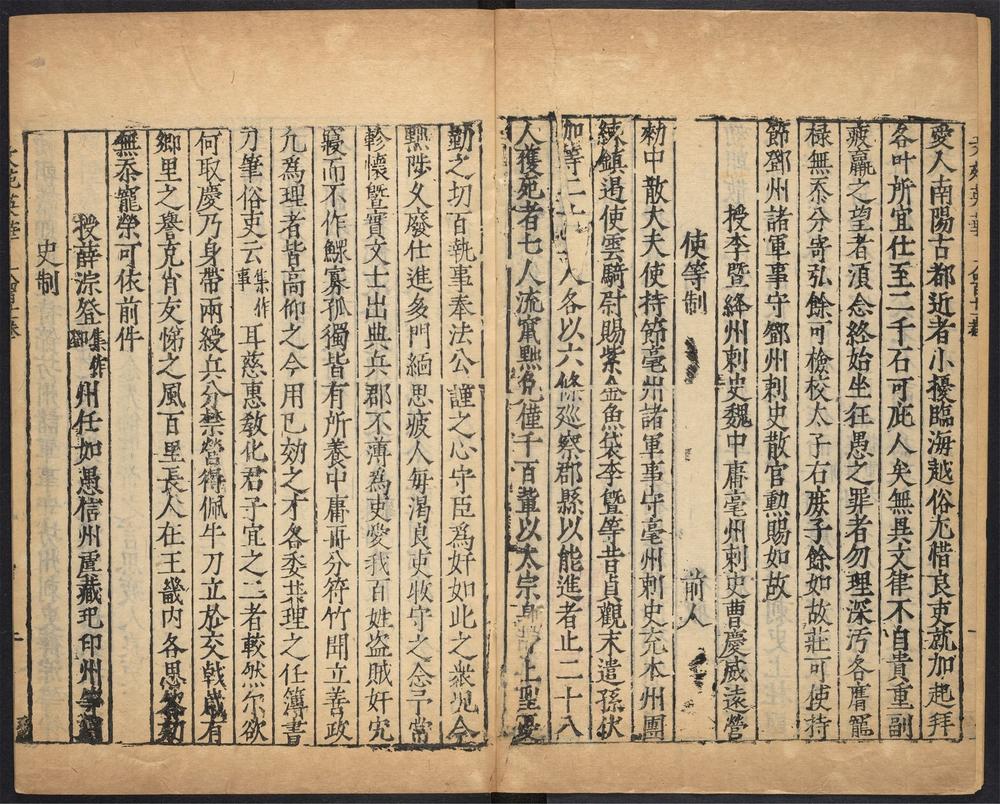 愛人南陽古都近者小擾臨海越俗尤惜良吏就加起拜
各叶所宜仕至二千石可庇人矣無異文律不自貴重副
疲羸之望者湏念終始坐狂愚之罪者勿理深汚各膺寵
祿無忝分寄弘餘可檢校太子右庶子餘如故莊可使持
節鄧州諸軍事守鄧州刺史散官勲賜如故
授李曁絳州刺史魏中庸亳州刺史曹慶威遠營
使等制 前人
勑中散大夫使持節亳州諸軍事守亳州刺史充本州團
練鎮遏使雲騎尉賜紫金魚袋李曁等昔貞觀末遣孫伏
加等二十人各以六條廵察郡縣以能進者止二十八
人獲死者七人流竄黜免僅千百輩以太宗身上聖憂
勤之切百執事奉法公謹之心守臣爲奸如此之衆況今
黜陟久廢仕進多門緬思疲人每渴良吏收守之念予當
軫懷曁實文士出典兵郡不薄爲吏愛我百姓盗賊奸宄
寢而不作鰥寡孤獨皆有所養中庸再分符竹聞立善政
凡爲理者皆高仰之今用已効之才各委共理之任簿書
刀筆俗吏云集作事耳慈惠敎化君子宜之二者較然尔欲
何取慶乃身帶兩綬兵分禁營得佩牛刀立於交戟咸有
鄉里之譽克肖友悌之風百里長人在王畿內各思答効
無忝寵榮可依前件
授薛淙登集作鄧州任如愚信州盧藏玘卭州等刺
史制